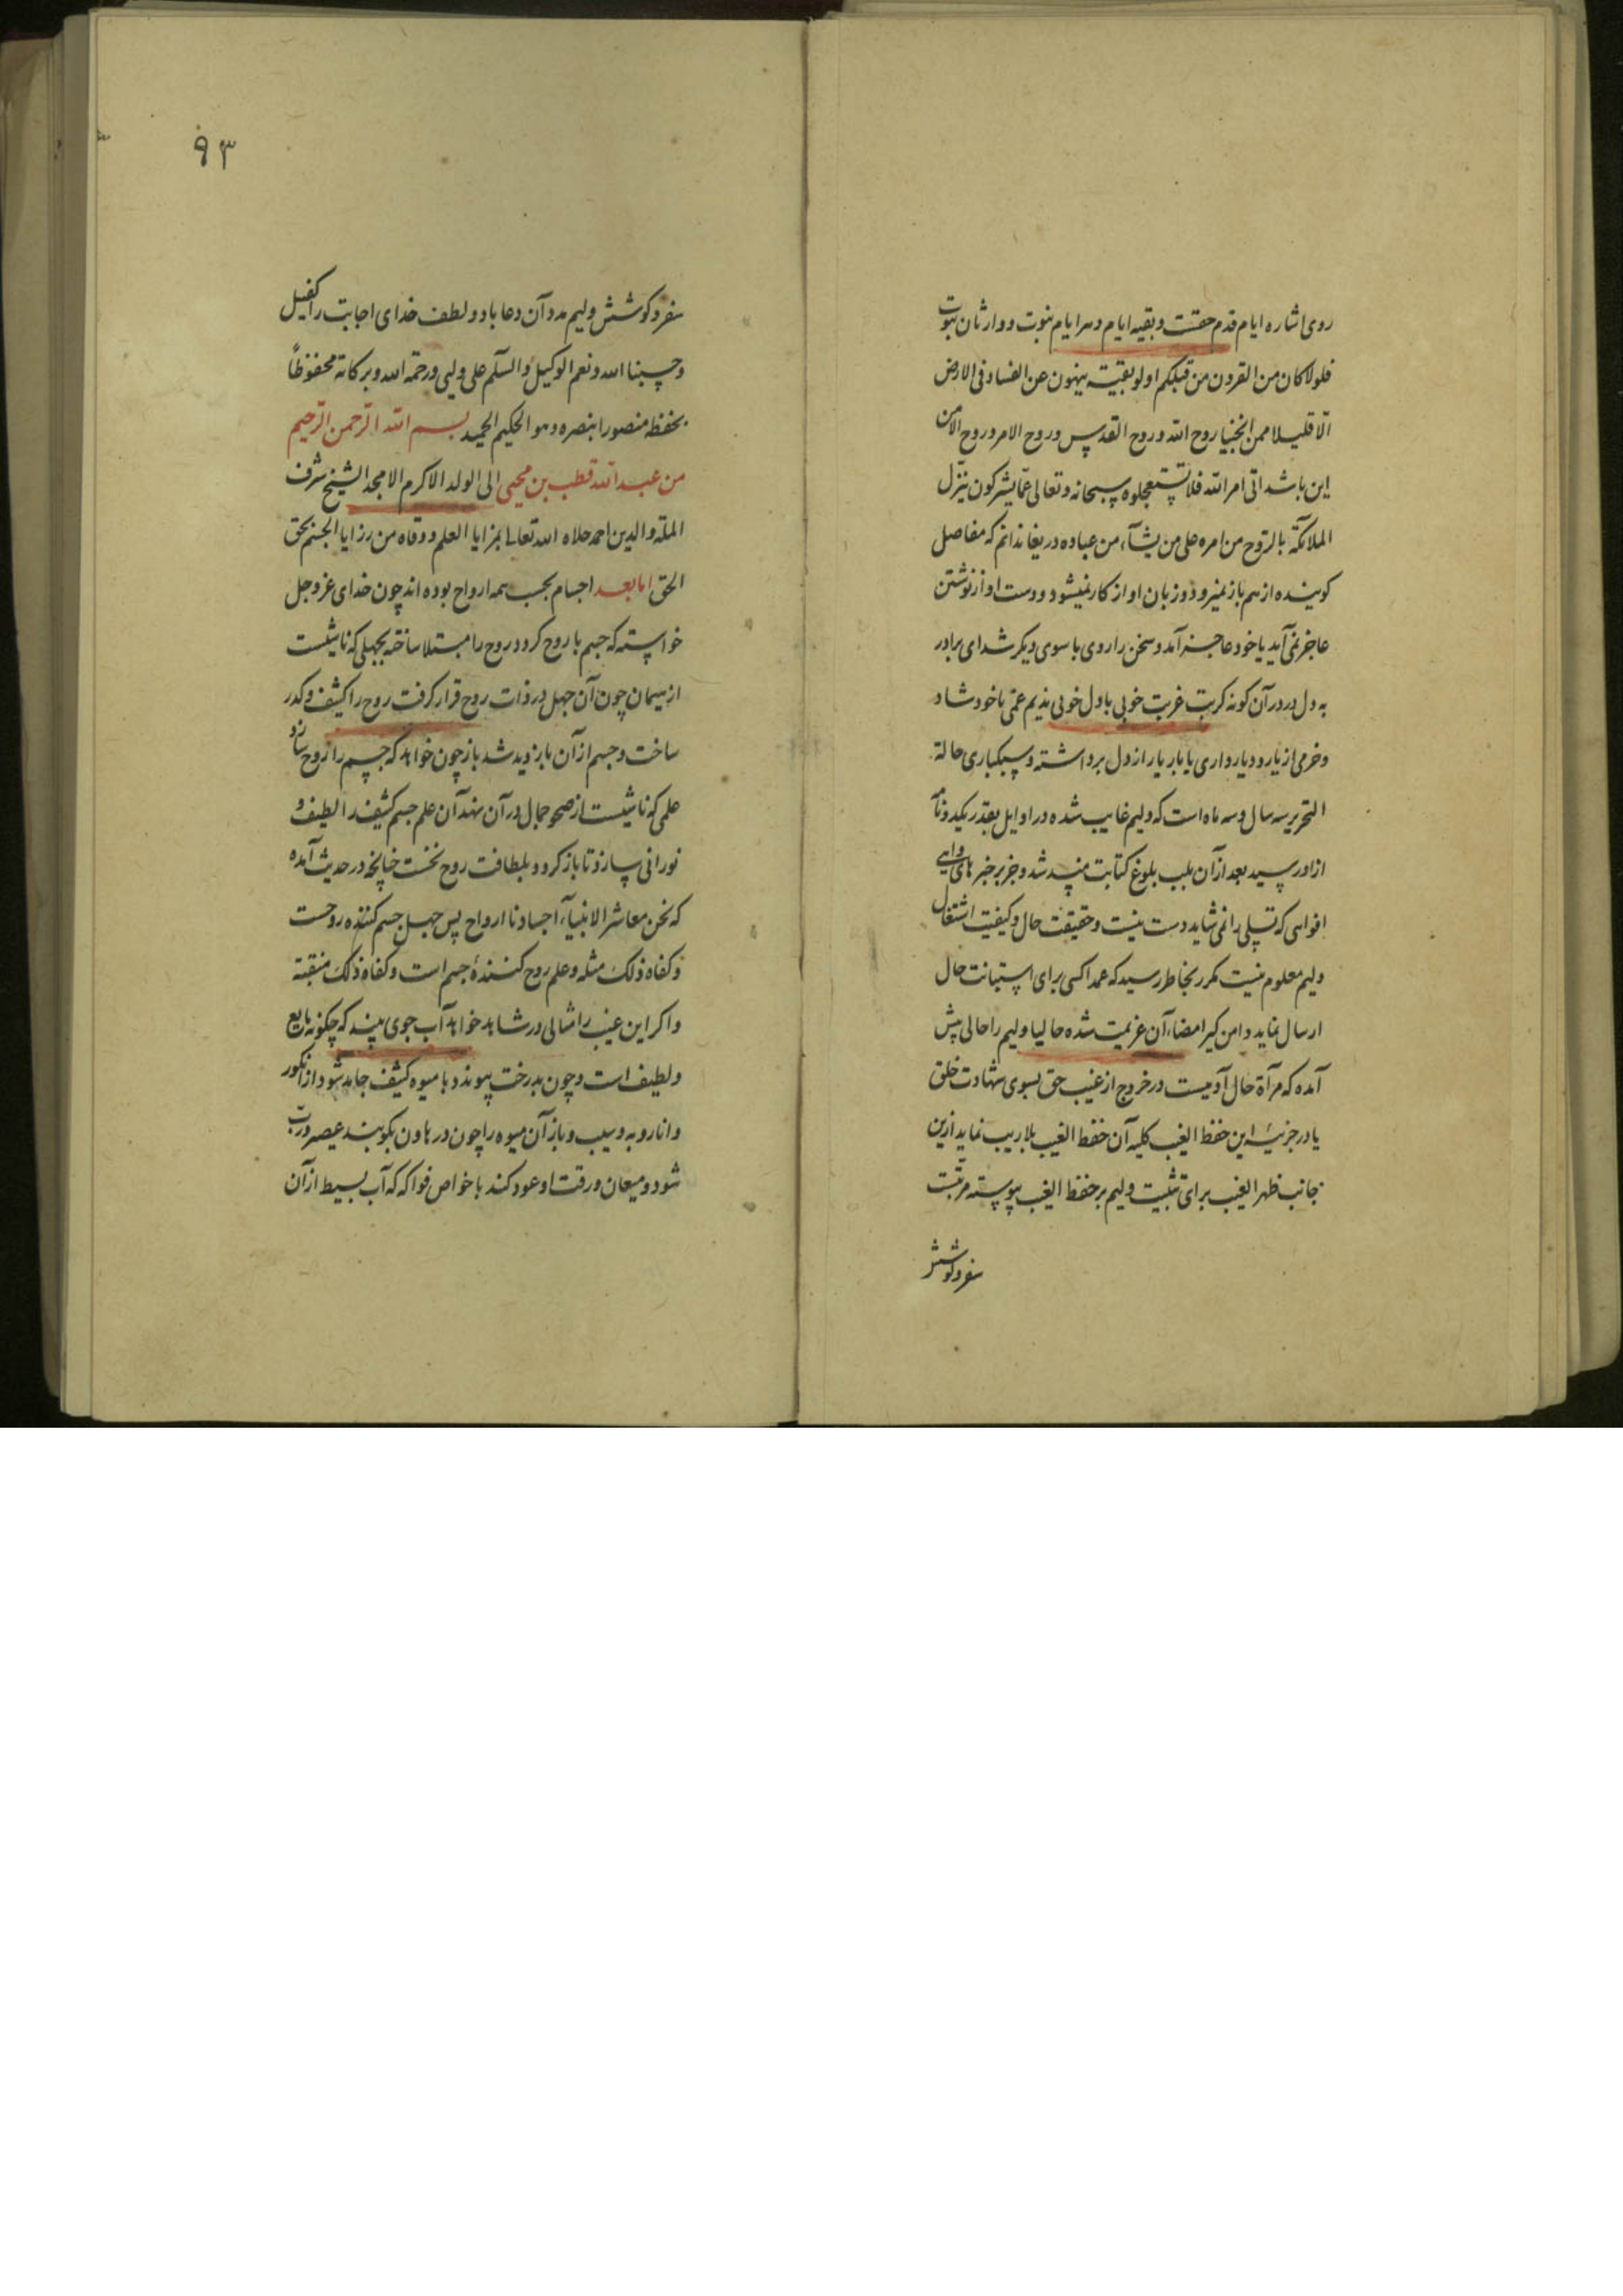 روی اشاره ایام قدم حقست و بقیه ایام و سرایام نبوت و وارثان نبوت
فلولا کان من القرون من قبلکم اولو بقیة ینهون عن الفساد فی الارض
الا قلیلا ممن انجینا روح الله و روح القدس و روح الامر و روح الامن
این باشد اتی امر الله فلا تستعجلوه سبحانه و تعالی عما یشرکون ینزل
الملائکة بالروح من امره علی من یشآء من عباده دریغا ندانم که مفاصل
گوینده از هم باز نمیرود و زبان او از کار نمیشود و دست او از نوشتن
عاجز نمی آید یا خود عاجز آمد و سخن را روی با سوی دیگر شد ای برادر
به دل درد در آن گونه کربت غربت خوبی با دل خوبی ندیم غمی با خود شاد
و خرمی از یار و دیار داری یا بار یار از دل برداشته و سبکباری حالة
التحریر سه سال و سه ماه است که ولیم غایب شده در اوایل بقدر یکدو نامه
از او رسید بعد از آن باب بلوغ کتابت منسد شد و جز بر خبرهای واهی
افواهی که تسلی را نمی شاید دست نیست و حقیقت حال و کیفیت اشتغال
ولیم معلوم نیست مکرر بخاطر رسید که عمدا کسی برای استبانت حال
ارسال نماید دامن گیر امضاء آن عزیمت شده حالیا ولیم را حالی پیش
آمده که مرآة حال آدمیست در خروج از غیب حق بسوی شهادت خلق
یا در جزئیه این حفظ الغیب کلیه آن حفظ الغیب بلا ریب نماید ازین
جانب ظهر الغیب برای تثبیت ولیم بر حفظ الغیب پیوسته مرتبت
سفر و کوشش
۹۳
سفر و کوشش ولیم مدد آن دعا باد و لطف خدای اجابت را کفیل
و حسبنا الله و نعم الوکیل و السلم علی ولیی و رحمة الله و برکاته محفوظاً
بحفظه منصورا بنصره و هو الحکیم الحمید بسم الله الرحمن الرحیم
من عبد الله قطب بن محیی الی الولد الاکرم الامجد الشیخ شرف
الملة و الدین احمد حلاه الله تعالی بمزایا العلم و وقاه من رزایا الجسم بحق
الحق اما بعد اجسام بحسب همه ارواح بوده اند چون خدای عز و جل
خواسته که جسم با روح گرد و روح را مبتلا ساخته بجهلی که ناشیست
از نسیمان چون آن جهل در ذات روح قرار گرفت روح را کثیف و کدر
ساخت و جسم از آن بازدید شد باز چون خواهد که جسم را روح سازد
علمی که ناشیست از صحو جمال در آن نهد آن علم جسم کثیف را لطیف و
نورانی سازد تا باز گردد بلطافت روح نخست چنانچه در حدیث آمده
که نحن معاشر الانبیآء اجسادنا ارواح پس جهل جسم کننده روحست
و کفاه ذلک مثله و علم روح کنندهٔ جسم است و کفاه ذلک منقبة
و اگر این غیب را مثالی در شاهد خواهد آب جوی بیند که چگونه مایع
و لطیف است و چون بدرخت پیوندد با میوه کثیف جامد شود از انگور
و انار و به و سیب و باز آن میوه را چون در هاون بکوبند عصیر و رب
شود و میعان و رقت او عود کند با خواص فواکه که آب بسیط از آن